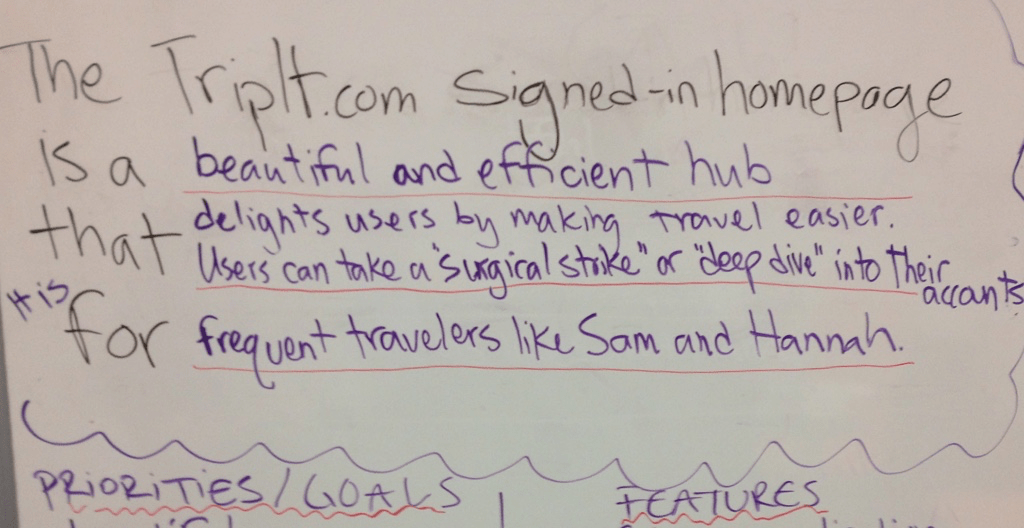 The TripIt.com signed-in homepage
is a beautiful and efficient hub
that delights users by making travel easier.
Users can take a "surgical strike" or "deep dive" into their
accants
It is
for frequent travelers like Sam and Hannah.
PRIORITIES/GOALS
FEATURES